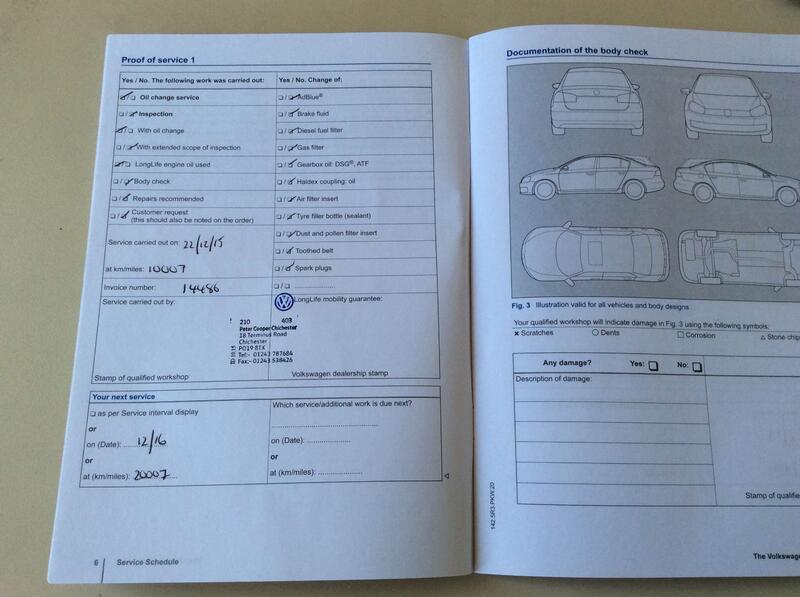 Proof of service 1
Yes / No. The following work was carried out: Yes / No. Change of:
Oil change service
Inspection
With oil change
With extended scope of inspection
LongLife engine oil used
Body check
Repairs recommended
Customer request
(this should also be noted on the order)
AdBlue®
Brake fluid
Diesel fuel filter
Gas filter
Gearbox oil: DSG®, ATF
Haldex coupling: oil
Air filter insert
Tyre filler bottle (sealant)
Dust and pollen filter insert
Toothed belt
Spark plugs
Service carried out on: 22/12/15
at km/miles: 10007
Invoice number: 14486
Service carried out by:
LongLife mobility guarantee:
VW
210 403
Peter Cooper Chichester
18 Terminus Road
Chichester
PO19 8TX
Tel:- 01243 787684
Fax:- 01243 538426
Stamp of qualified workshop
Volkswagen dealership stamp
Your next service
as per Service interval display
or
on (Date): 12/16
or
at (km/miles): 20007
Which service/additional work is due next?
on (Date):
or
at (km/miles):
6 Service Schedule
Documentation of the body check
Fig. 3 Illustration valid for all vehicles and body designs
Your qualified workshop will indicate damage in Fig. 3 using the following symbols:
Scratches Dents Corrosion Stone chip
Any damage? Yes: No:
Description of damage:
Stamp of qualifie
142.5R3.PKW.20
The Volkswage